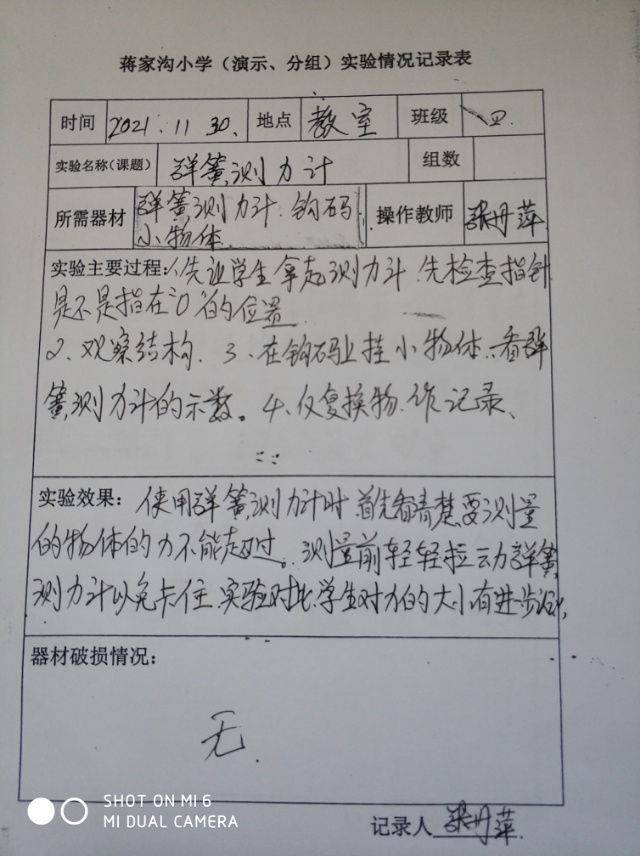 蒋家沟小学（演示、分组）实验情况记录表
时间 2021.11.30. 地点 教室 班级 四.
实验名称(课题) 弹簧测力计 组数
所需器材 弹簧测力计.钩码 操作教师 张丹萍
小物体.
实验主要过程：1.先让学生拿起测力计.先检查指针
是不是指在"0"的位置
2、观察结构. 3、在钩码上挂小物体.看弹
簧测力计的示数。4、反复换物.作记录、
实验效果：使用弹簧测力计时.首先看清楚要测量
的物体的力不能超过。测量前轻轻拉动弹簧
测力计以免卡住.实验对比.学生对力的大小有进步
器材破损情况：
无.
SHOT ON MI 6
MI DUAL CAMERA
记录人 张丹萍